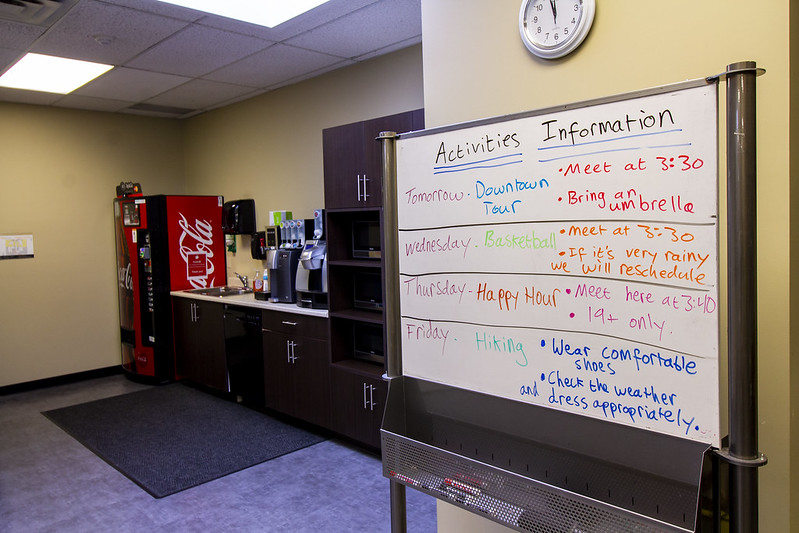 Activities Information
Tomorrow - Downtown Tour
• Meet at 3:30
• Bring an umbrella
Wednesday - Basketball
• meet at 3:30
• If it's very rainy
we will reschedule
Thursday - Happy Hour
• Meet here at 3:40
• 19+ only.
Friday - Hiking
• Wear comfortable
shoes
• Check the weather
and dress appropriately.
Coca-Cola